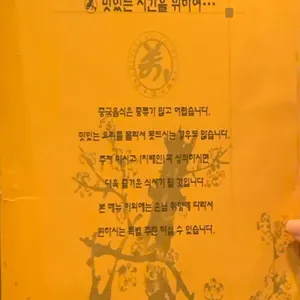 맛있는 시간을 위하여...
중국음식은 종류가 많고 어렵습니다.
맛있는 요리를 몰라서 못드시는 경우도 많습니다.
주저 마시고 (지배인)과 상의하시면
더욱 즐거운 식사가 될 것입니다.
본 메뉴 이외에는 손님 취향에 따라서
원하시는 특별 주문 하실 수 있습니다.